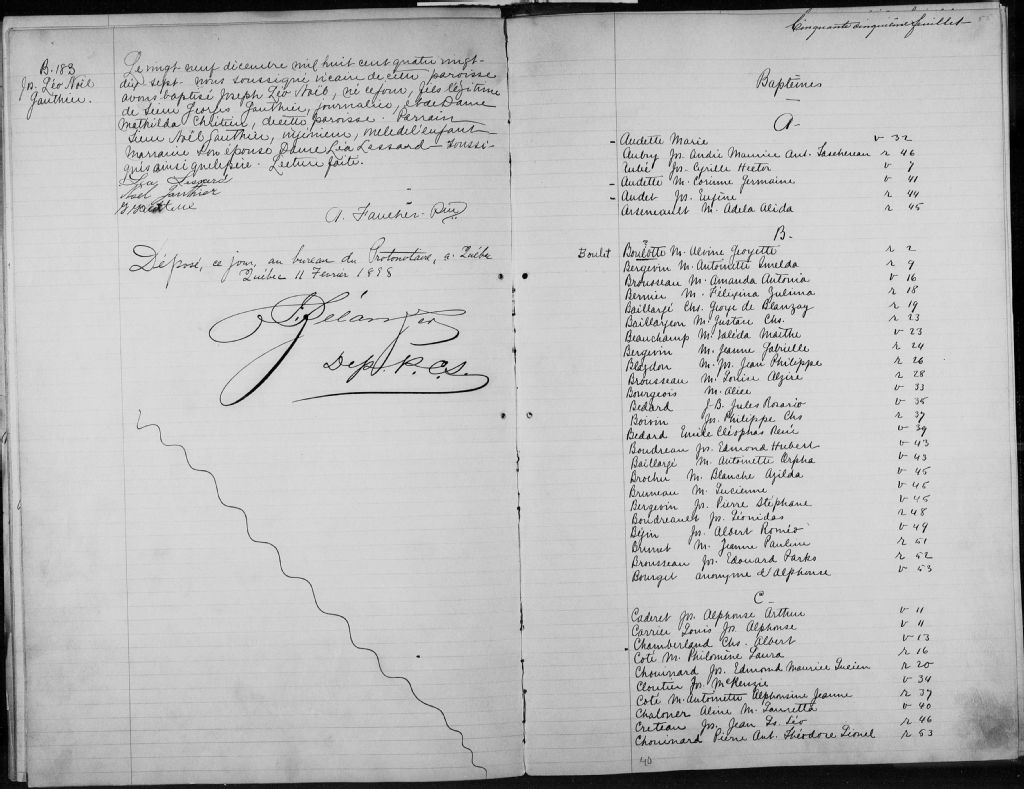 B. 183
Jos. Léo Noël
Gauthier.
Le vingt neuf décembre mil huit cent quatre vingt-
dix sept nous soussigné vicaire de cette paroisse
avons baptisé Joseph Léo Noël, né ce jour, fils légitime
de Sieur Georges Gauthier, journalier, et de Dame
Mathilda Chrétien, de cette paroisse. Parrain
Sieur Noël Gauthier, ingénieur, oncle de l'enfant
Marraine son épouse Dame Léa Lessard soussi-
gnés ainsi que le père. Lecture faite.
Léa Lessard
Noel Gauthier
A. Faucher Ptre
Déposé, ce jour, au bureau du Protonotaire, a Québec
Québec 11 Fevrier 1898
Bélanger
Dep P. C. S.
Cinquante cinquième feuillet
Baptêmes
A
Audette Marie v 32
Aubry Jos. André Maurice Ant. Taschereau r 46
Jos. Cyrille Hector v 7
Audette M. Corinne Germaine v 41
Audet Jos. Eugène r 44
Arseneault M. Adela Alida r 45
B
Boulet
Boulotte M. Alvine Georgette r 2
Bergevin M. Antoinette Imelda r 9
Brousseau M. Amanda Antonia v 16
Bernier M. Filixina Zulima r 18
Baillargé Chs. George de Blanzay r 19
Baillargeon M. Gustave Chs. r 23
Beauchamp M. Valéda Marthe v 23
Bergevin M. Jeanne Gabrielle r 24
Blagdon M. Jos. Jean Philippe r 26
Brousseau M. Louise Alzire r 28
Bourgeois M. Alice v 33
Bedard J. B. Jules Rosario v 35
Boivin Jos. Philippe Chs r 37
Bedard Emile Cléophas René v 39
Boudreau Jos. Edmond Hubert v 43
Baillargé M. Antoinette Orpha v 43
Brochu M. Blanche Azilda v 45
Bruneau M. Lucienne v 45
Bergevin Jos. Pierre Stéphane v 45
Boudreault Jos. Léonidas r 48
Bégin Jos. Albert Roméo v 49
Brunet M. Jeanne Pauline r 51
Brousseau Jos. Edouard Parks r 52
Bourget anonyme d'Alphonse v 53
C
Caderet Jos. Alphonse Arthur v 11
Carrier Louis Jos. Alphonse v 11
Chamberland Chs. Albert v 13
Coté M. Philomène Laura r 16
Chouinard Jos. Edmond Maurice Lucien r 20
Cloutier Jos. McKenzie v 34
Coté M. Antoinette Alphonsine Jeanne r 37
Chaloner Aline M. Lauretta v 40
Creteau Jos. Jean Ls. Léo r 46
Chouinard Pierre Ant. Théodore Lionel r 53
40